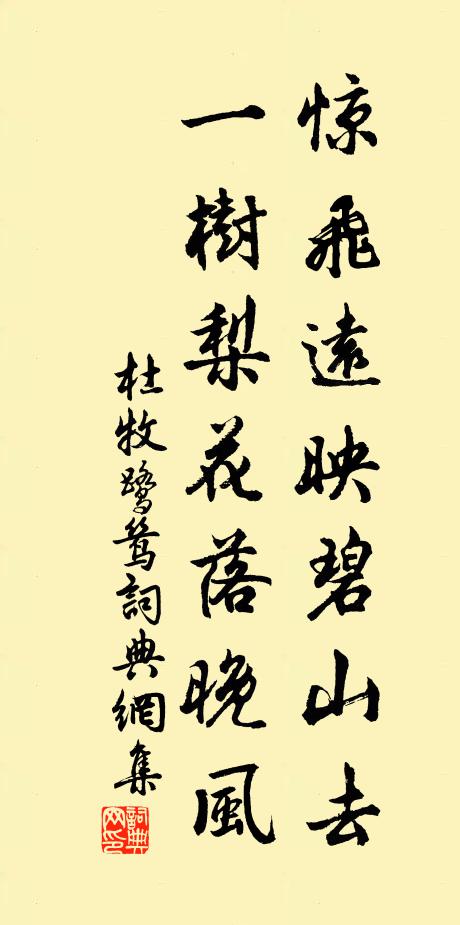 惊飛遠映碧山去
一樹梨花落晚風
杜牧鷺鷥詞典網集
詞典
网印